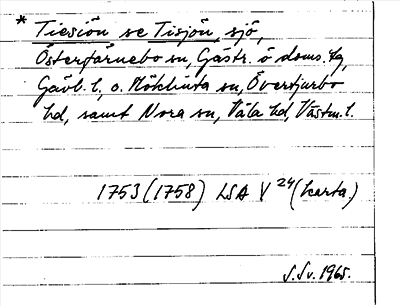 * Tiesiön se Tisjön, sjö,
Österfärnebo sn, Gästr. ö doms. hg,
Gävl. l, o. Möklinta sn, Överstjurbo
hd, samt Nora sn, Våla hd, Västm. l.
1753 (1758) LSA V 24 (karta)
S. Sv. 1965.